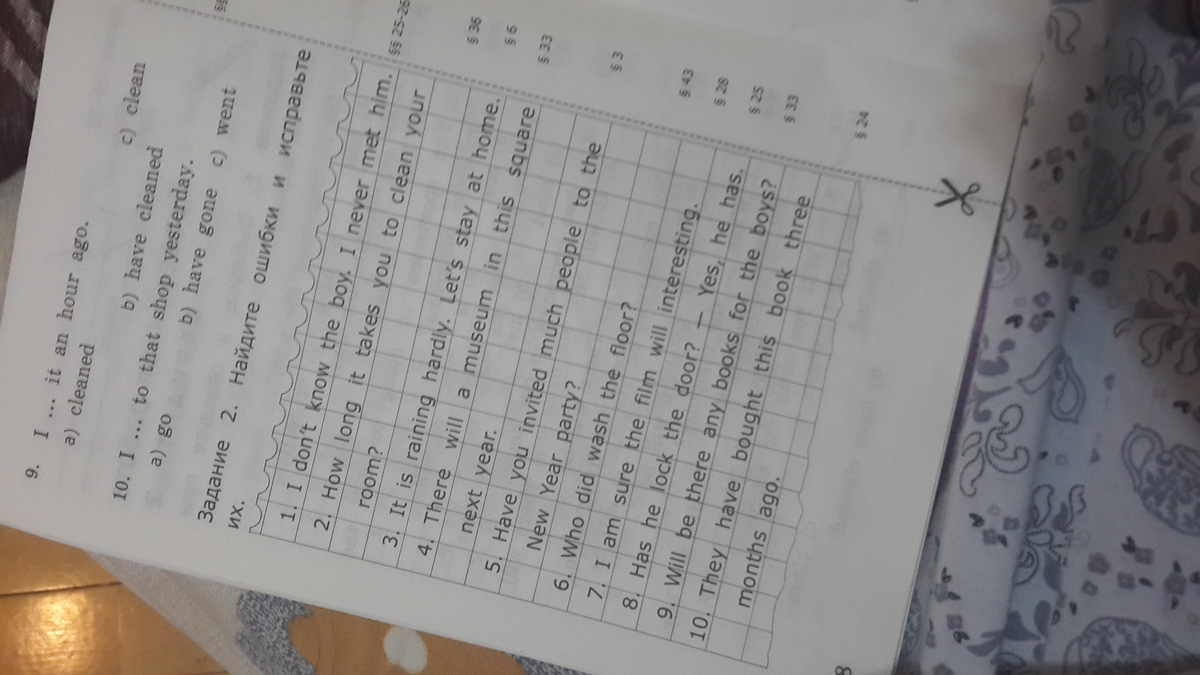 9. I ... it an hour ago.
a) cleaned b) have cleaned c) clean
10. I ... to that shop yesterday.
a) go b) have gone c) went
Задание 2. Найдите ошибки и исправьте
их.
1. I don't know the boy. I never met him. §§ 25-26
2. How long it takes you to clean your
room? § 36
3. It is raining hardly. Let's stay at home. § 6
4. There will a museum in this square § 33
next year.
5. Have you invited much people to the § 3
New Year party?
6. Who did wash the floor? § 43
7. I am sure the film will interesting. § 28
8. Has he lock the door? — Yes, he has. § 25
9. Will be there any books for the boys? § 33
10. They have bought this book three
months ago. § 24
8